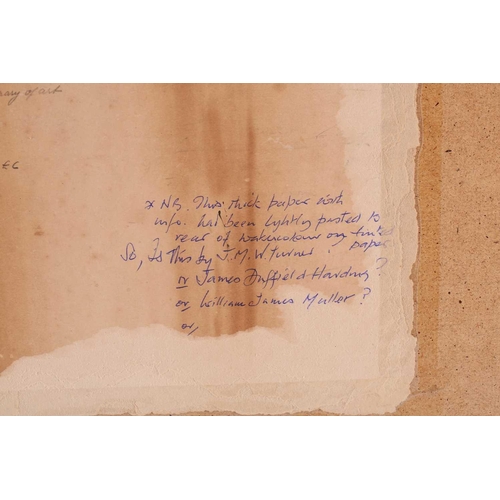 rary of art
£6
* NB. This thick paper with
info. has been lightly pasted to
rear of watercolour on tinted
paper
So, Is this by J.M.W. Turner?
or James Duffield Harding?
or, William James Muller?
or,